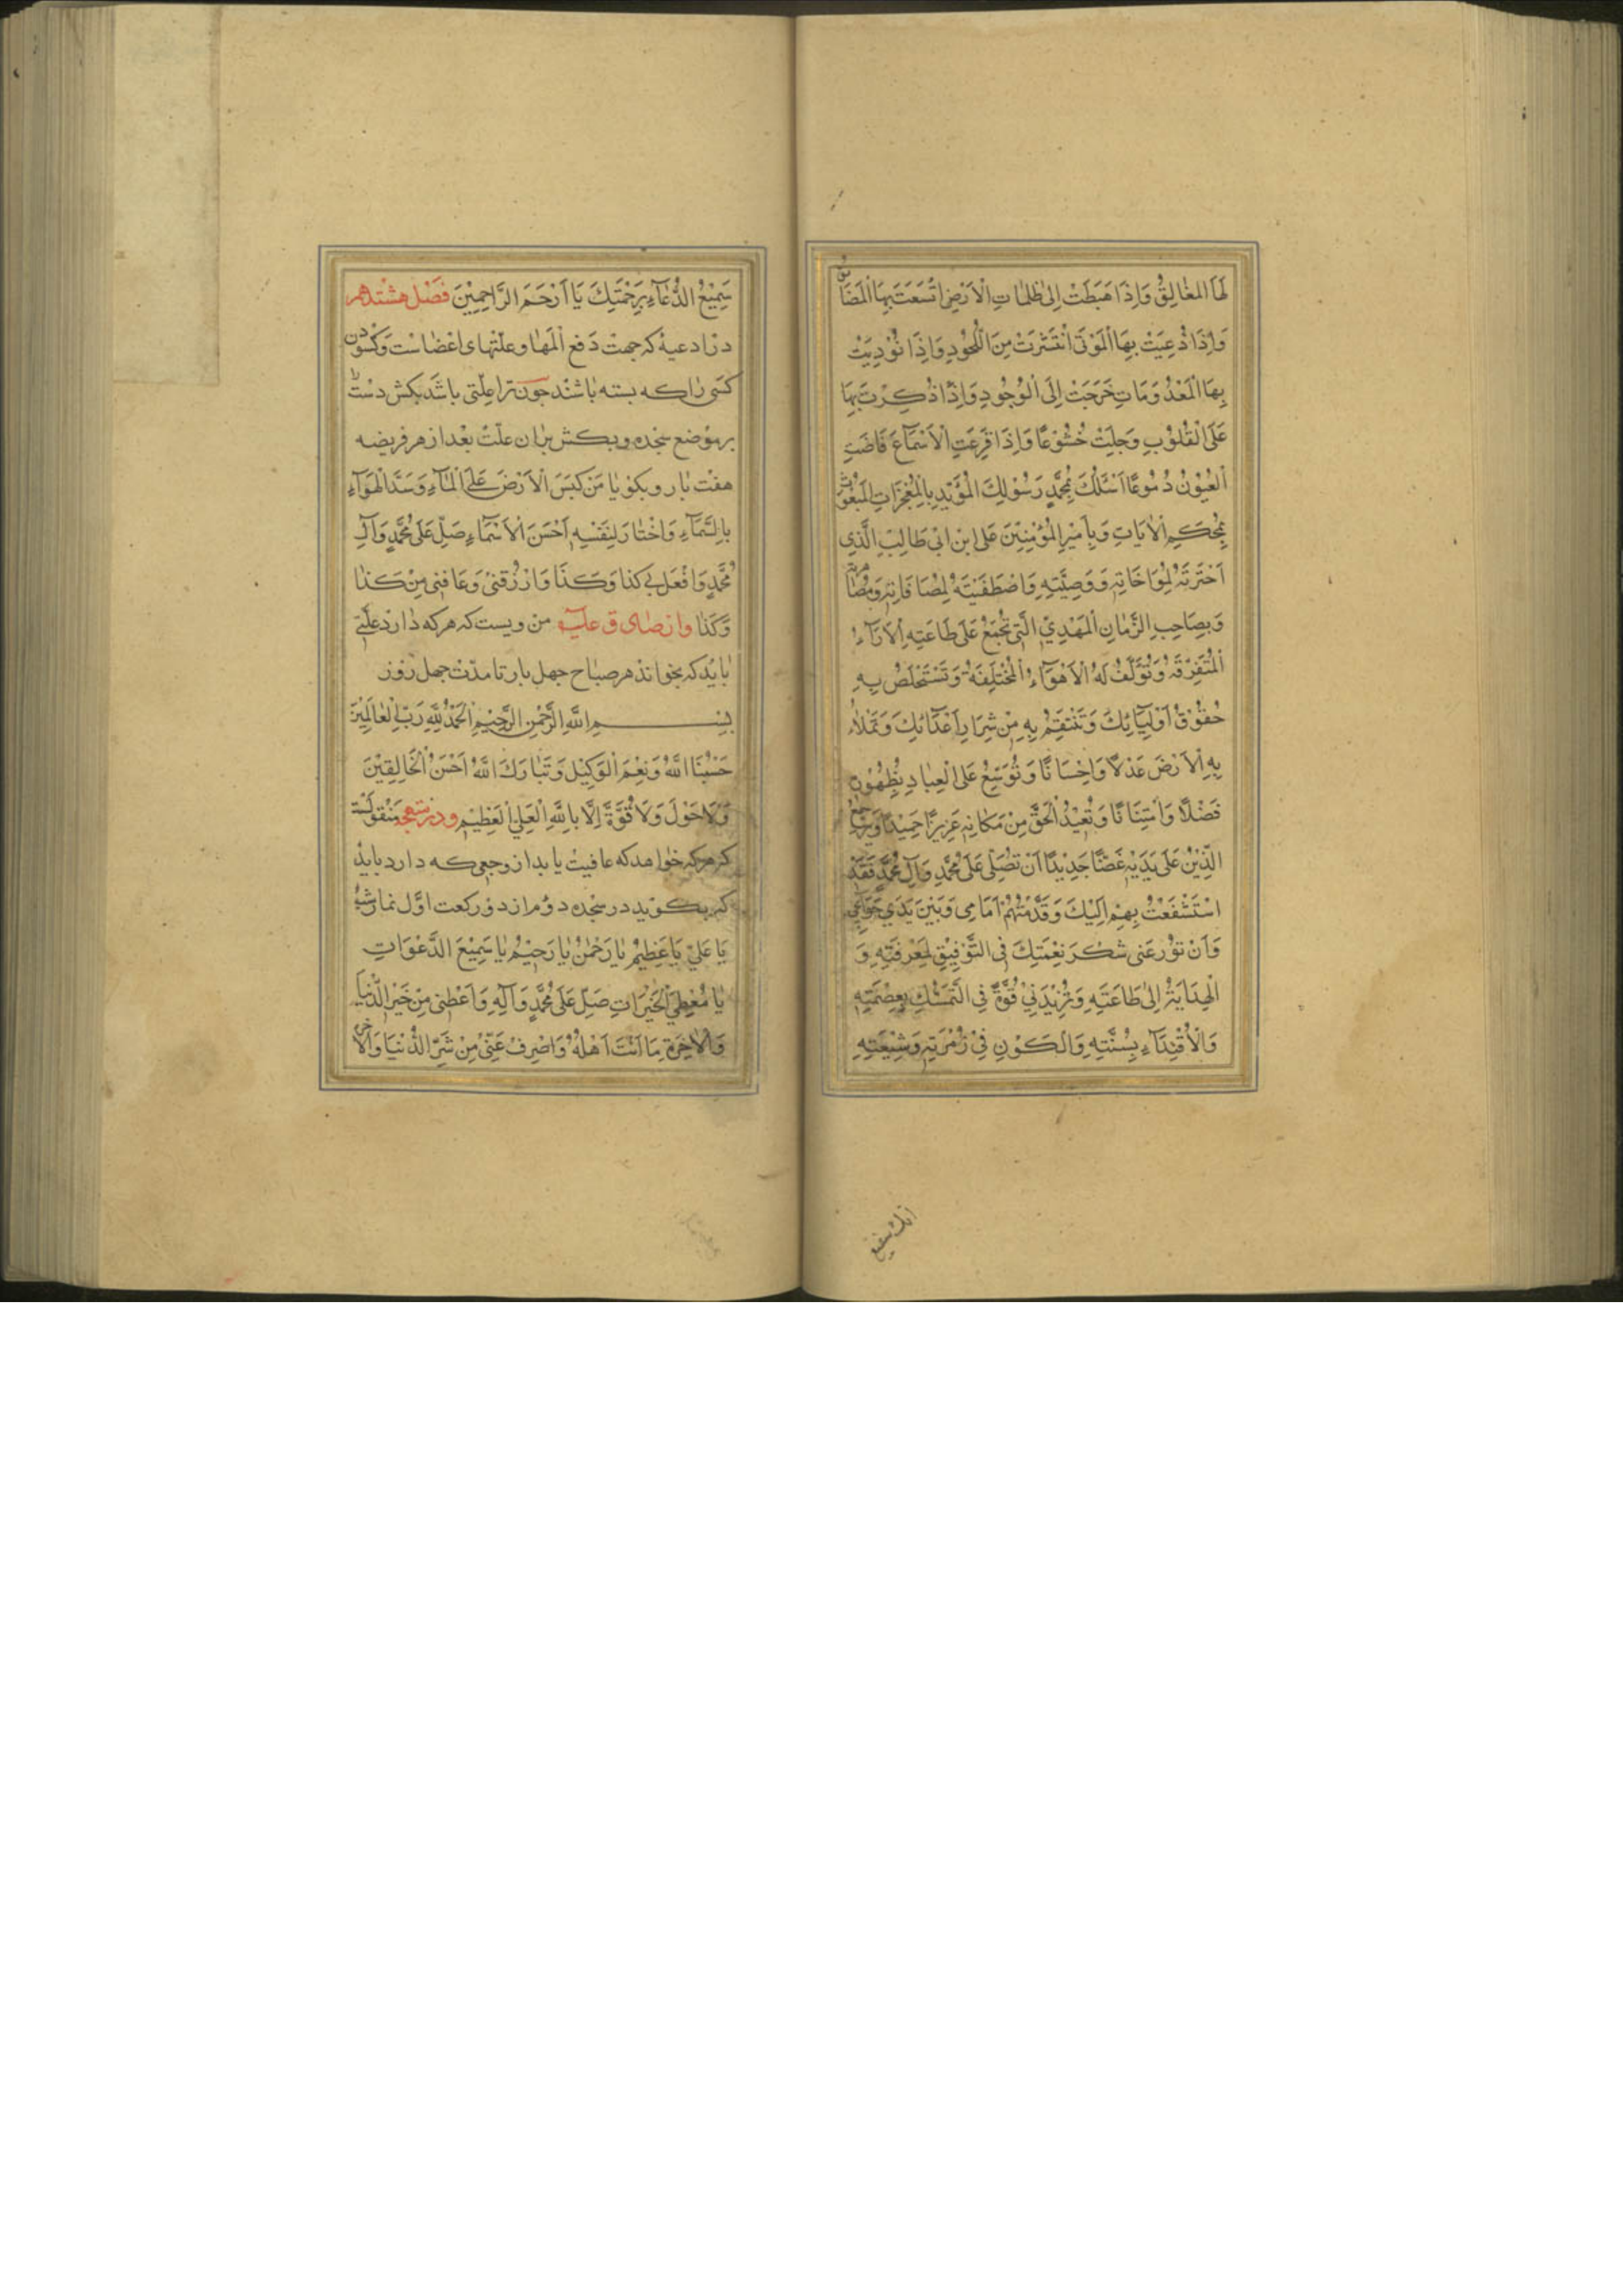 لَهَا الْمَغَالِقُ وَاِذَا هَبَطَتْ اِلٰى ظُلُمَاتِ الْاَرْضِ اتَّسَعَتْ بِهَا الْمَضَايِقُ
وَاِذَا دُعِيَتْ بِهَا الْمَوْتٰى انْتَشَرَتْ مِنَ اللُّحُودِ وَاِذَا نُوْدِيَتْ
بِهَا الْمَعْدُوْمَاتِ خَرَجَتْ اِلَى الْوُجُودِ وَاِذَا ذُكِرَتْ بِهَا
عَلَى الْقُلُوْبِ وَجِلَتْ خُشُوْعًا وَاِذَا قَرِعَتِ الْاَسْمَاعَ فَاضَتِ
الْعُيُوْنُ دُمُوْعًا اَسْئَلُكَ بِمُحَمَّدٍ رَسُوْلِكَ الْمُؤَيَّدِ بِالْمُعْجِزَاتِ الْمَبْعُوْثِ
بِمُحْكَمِ الْاٰيَاتِ وَبِاَمِيْرِ الْمُؤْمِنِيْنَ عَلِى ابْنِ ابْى طَالِبٍ الَّذِى
اخْتَرْتَهُ لِمُوَاخَاتِهِ وَوَصِيَّتِهِ وَاصْطَفَيْتَهُ لِمُصَافَاتِهِ وَمُصَاهَرَتِهِ
وَبِصَاحِبِ الزَّمَانِ الْمَهْدِيِّ الَّتِى تَجْمَعُ عَلَى طَاعَتِهِ الْاَرَآءِ
الْمُتَفَرِّقَةِ وَتُؤَلِّفُ لَهُ الْاَهْوَآءِ الْمُخْتَلِفَةَ وَتَسْتَخْلِصُ بِهِ
حُقُوْقَ اَوْلِيَآئِكَ وَتَنْتَقِمُ بِهِ مِنْ شِرَارِ اَعْدَائِكَ وَتَمْلَاُ
بِهِ الْاَرْضَ عَدْلًا وَاِحْسَانًا وَتُوَسِّعُ عَلَى الْعِبَادِ بِظُهُوْرِهِ
فَضْلًا وَامْتِنَانًا وَتُعِيْدُ الْحَقَّ مِنْ مَكَانِهِ عَزِيْزًا حَمِيْدًا وَيَرْجِعُ
الدِّيْنُ عَلَى يَدَيْهِ غَضًّا جَدِيْدًا اَنْ تُصَلِّىَ عَلَى مُحَمَّدٍ وَآلِ مُحَمَّدٍ فَقَدْ
اسْتَشْفَعْتُ بِهِمْ اِلَيْكَ وَقَدَّمْتُهُمْ اَمَامِى وَبَيْنَ يَدَيْ حَوَائِجِى
وَاَنْ تُوْزِعَنِى شُكْرَ نِعْمَتِكَ فِى التَّوْفِيْقِ لِمَعْرِفَتِهِ وَ
الْهِدَايَةِ اِلٰى طَاعَتِهِ وَتَزِيْدَنِيْ قُوَّةً فِى التَّمَسُّكِ بِعِصْمَتِهِ
وَالْاِقْتِدَآءِ بِسُنَّتِهِ وَالْكَوْنِ فِيْ زُمْرَتِهِ وَشِيْعَتِهِ
انك سميع
سَمِيْعُ الدُّعَآءِ بِرَحْمَتِكَ يَا اَرْحَمَ الرَّاحِمِيْنَ فَصْل هشتدهم
در ادعیهٔ که جهت دَفع الَمَها و علّتهاى اعضاست وکشودن
کسى را که بسته باشند چون ترا علّتى باشد بکش دست
بر موضع سجده و بکش بر ان علّت بعد از هر فریضه
هفت بار و بکو یا مَنْ كَبَسَ الْاَرْضَ عَلَى الْمَآءِ وَسَدَّ الْهَوَآءِ
بِالسَّمَآءِ وَاخْتَارَ لِنَفْسِهِ اَحْسَنَ الْاَسْمَآءِ صَلِّ عَلَى مُحَمَّدٍ وَآلِ
مُحَمَّدٍ وَافْعَلْ بِى كَذَا وَكَذَا وَارْزُقْنِى وَعَافِنِى مِنْ كَذَا
وَكَذَا واز صادق عليه مرویست که هر که دارد علّتى
باید که بخواند هر صباح چهل بار تا مدّت چهل روز
بِسْمِ اللهِ الرَّحْمٰنِ الرَّحِيْمِ الْحَمْدُ لِلّٰهِ رَبِّ الْعَالَمِيْنَ
حَسْبُنَا اللّٰهُ وَنِعْمَ الْوَكِيْلُ وَتَبَارَكَ اللّٰهُ اَحْسَنُ الْخَالِقِيْنَ
وَلَا حَوْلَ وَلَا قُوَّةَ اِلَّا بِاللّٰهِ الْعَلِىِّ الْعَظِيْمِ و در متهجد منقولست
که هر که خواهد که عافیت یابد از وجعى که دارد باید
که بکوید در سجده دوم از دو رکعت اوّل نماز شب
يَا عَلِيُّ يَا عَظِيْمُ يَا رَحْمٰنُ يَا رَحِيْمُ يَا سَمِيْعَ الدَّعَوَاتِ
يَا مُعْطِيَ الْخَيْرَاتِ صَلِّ عَلَى مُحَمَّدٍ وَآلِهِ وَاَعْطِنِى مِنْ خَيْرِ الدُّنْيَا
وَالْاٰخِرَةِ مَا اَنْتَ اَهْلُهُ وَاصْرِفْ عَنِّىْ مِنْ شَرِّ الدُّنْيَا وَالْاٰخِرَةِ